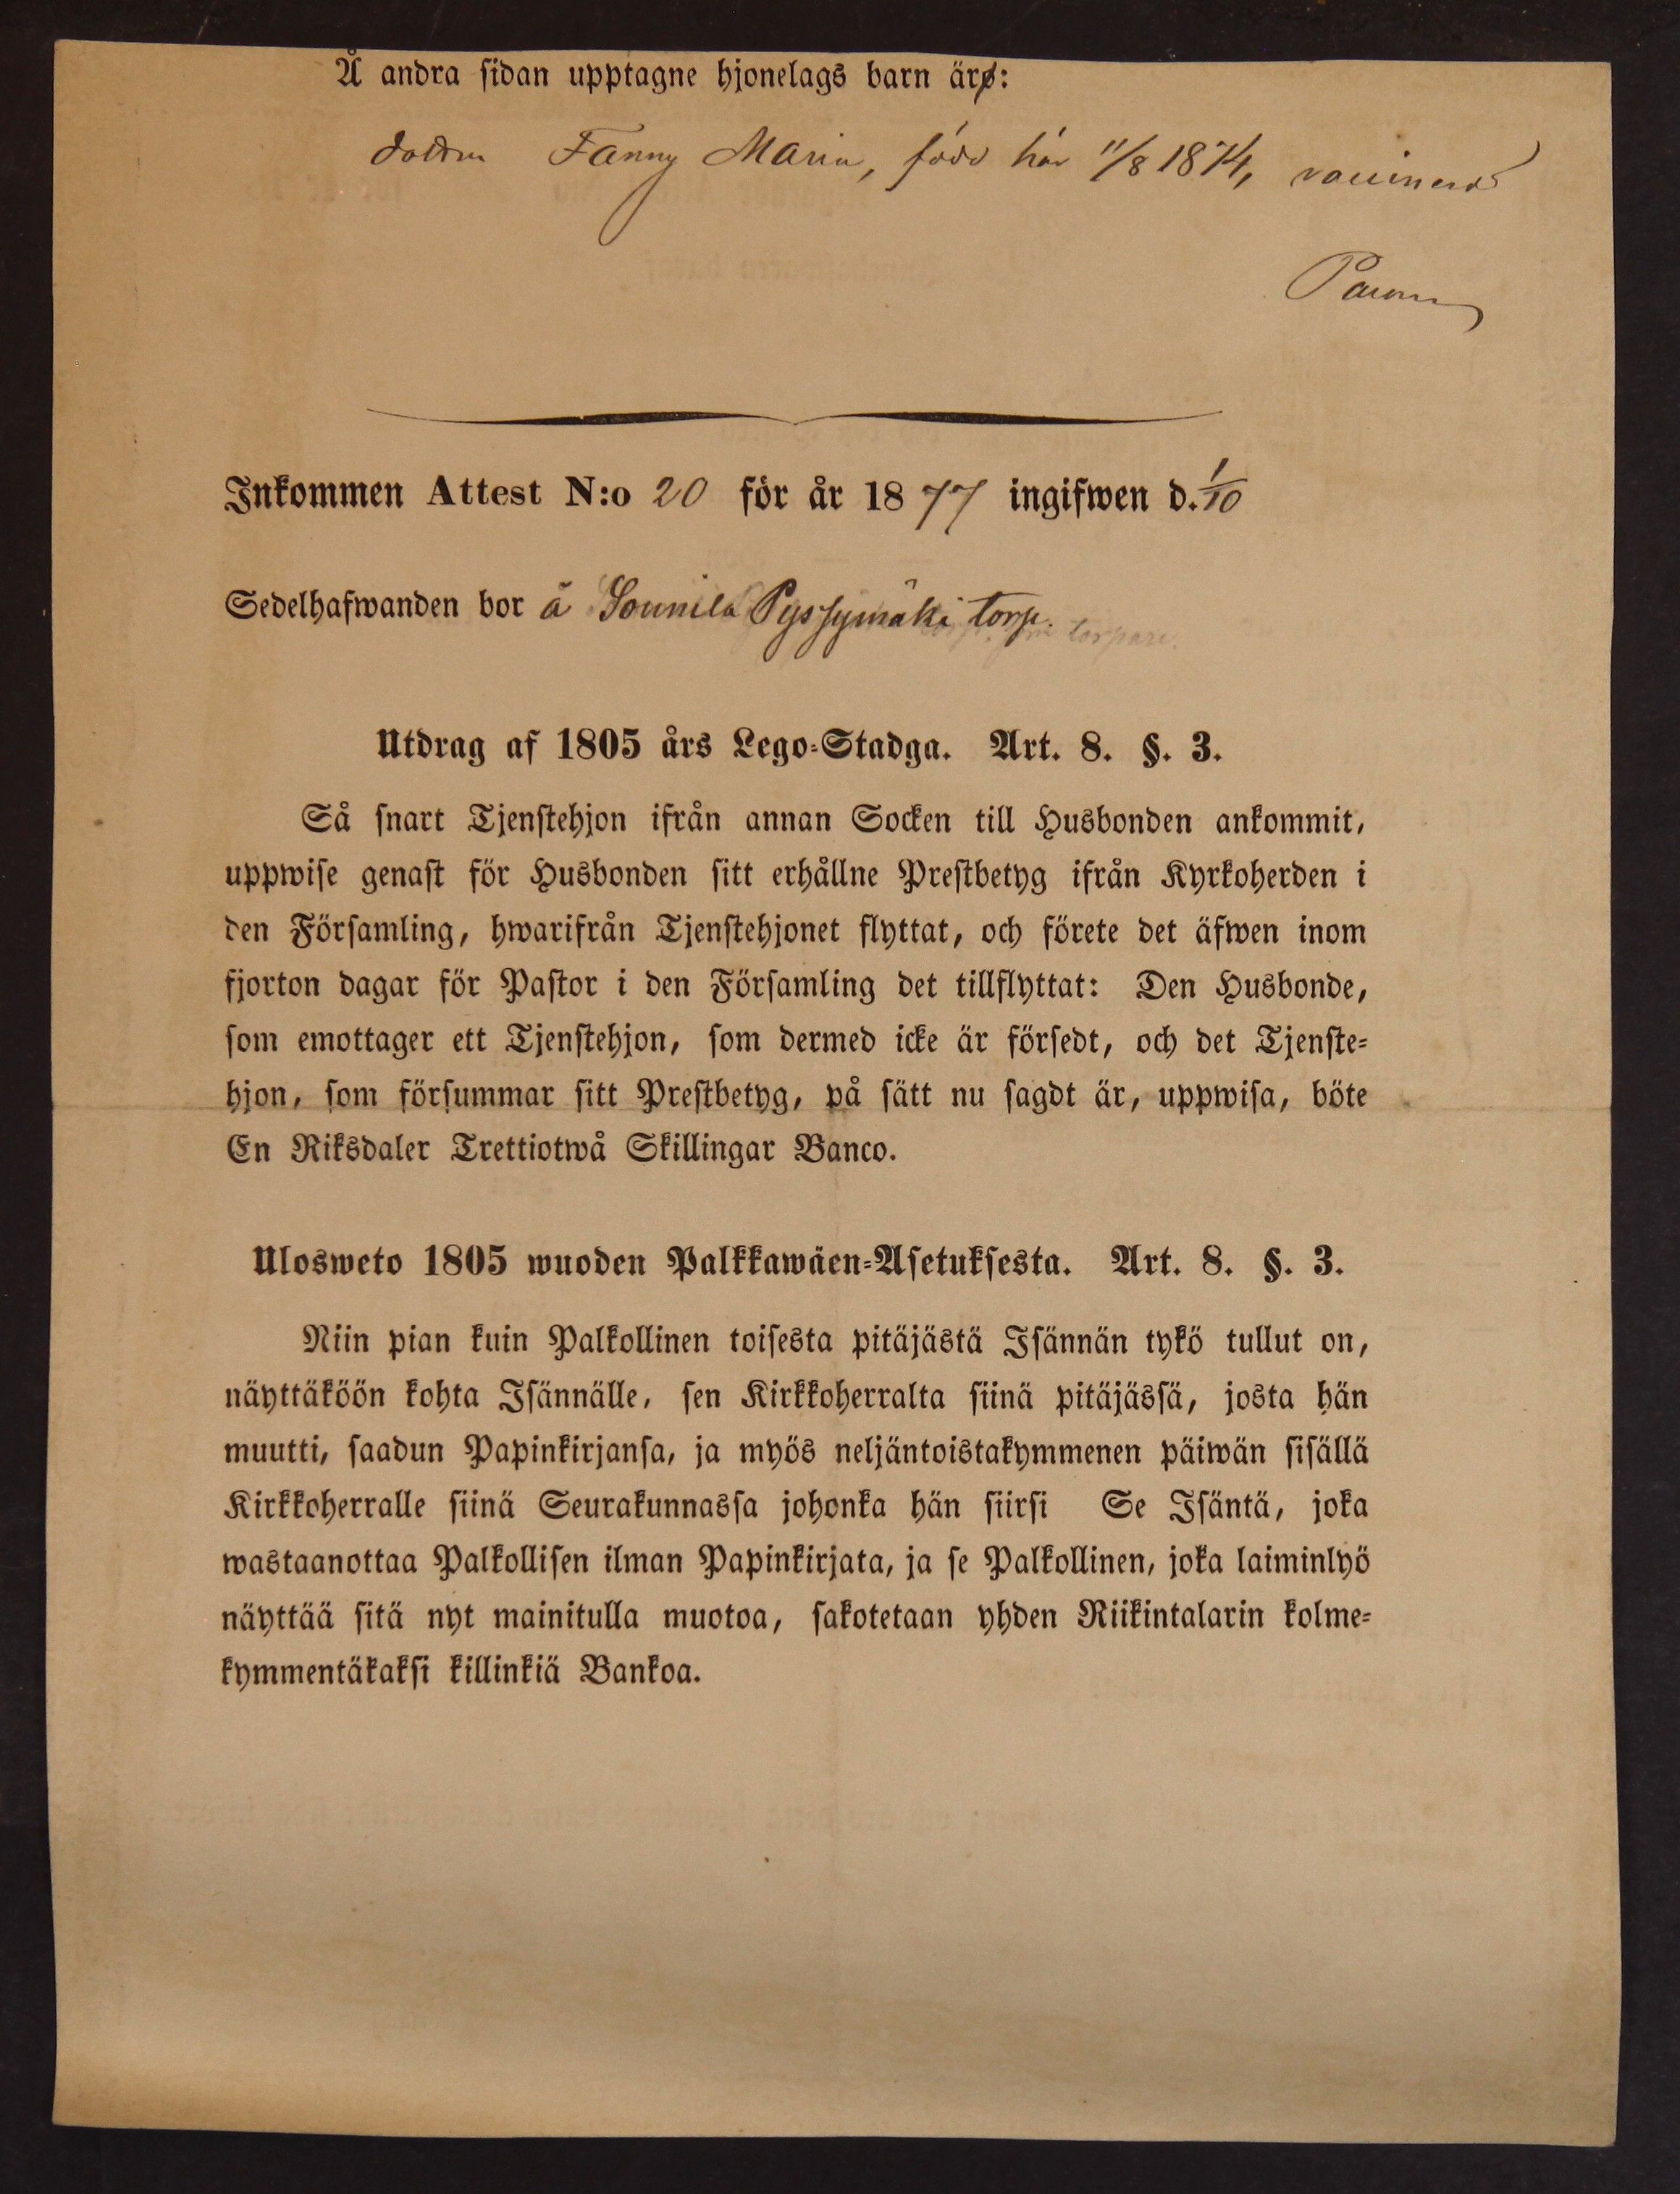 Å andra sidan upptagne hjonelags barn äro:
dottren Fanny Maria, född här 11/8 1874, vaccinerad
Inkommen Attest N:o 20 för år 1877 ingifwen d. 1/10
Sedelhafwanden bor å Sounila Pyssymäki torp.
Utdrag af 1805 års Lego-Stadga. Art. 8. §. 3.
Så snart Tjenstehjon ifrån annan Socken till Husbonden ankommit,
uppwise genast för Husbonden sitt erhållne Prestbetyg ifrån Kyrkoherden i
den Församling, hwarifrån Tjenstehjonet flyttat, och förete det äfwen inom
fjorton dagar för Pastor i den Församling det tillflyttat: Den Husbonde,
som emottager ett Tjenstehjon, som dermed icke är försedt, och det Tjenste-
hjon, som försummar sitt Prestbetyg, på sätt nu sagdt är, uppwisa, böte
En Riksdaler Trettiotwå Skillingar Banco.
Ulosweto 1805 wuoden Palkkawäen-Asetuksesta. Art. 8. §. 3.
Niin pian kuin Palkollinen toisesta pitäjästä Isännän tykö tullut on,
näyttäköön kohta Isännälle, sen Kirkkoherralta siinä pitäjässä, josta hän
muutti, saadun Papinkirjansa, ja myös neljäntoistakymmenen päiwän sisällä
Kirkkoherralle siinä Seurakunnassa johonka hän siirsi Se Isäntä, joka
wastaanottaa Palkollisen ilman Papinkirjata, ja se Palkollinen, joka laiminlyö
näyttää sitä nyt mainitulla muotoa, sakotetaan yhden Riikintalarin kolme-
kymmentäkaksi killinkiä Bankoa.